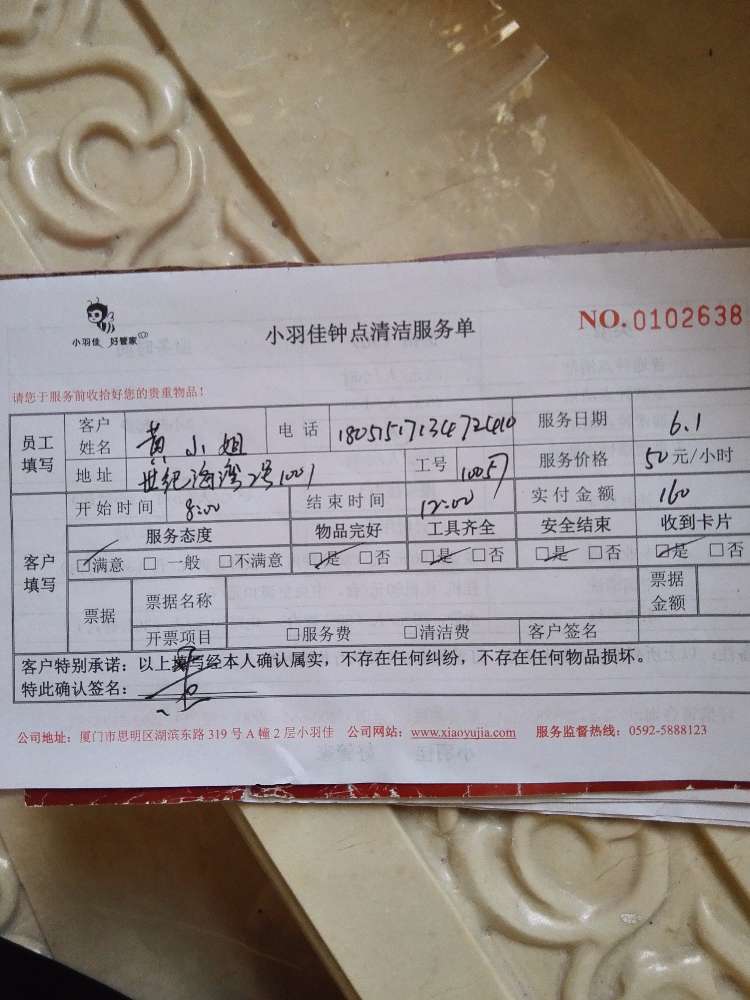 小羽佳 好管家
小羽佳钟点清洁服务单
NO.0102638
请您于服务前收拾好您的贵重物品!
员工填写 客户姓名 黄小姐 电话 服务日期 6.1
地址 世纪海湾2号1001 工号 服务价格 50元/小时
客户填写 开始时间 8:00 结束时间 12:00 实付金额 160
服务态度 物品完好 工具齐全 安全结束 收到卡片
☑满意 □一般 □不满意 ☑是 □否 ☑是 □否 ☑是 □否 ☑是 □否
票据 票据名称 票据金额
开票项目 □服务费 □清洁费 客户签名
客户特别承诺:以上填写经本人确认属实,不存在任何纠纷,不存在任何物品损坏。
特此确认签名:
公司地址:厦门市思明区湖滨东路319号A幢2层小羽佳 公司网站:www.xiaoyujia.com 服务监督热线:0592-5888123